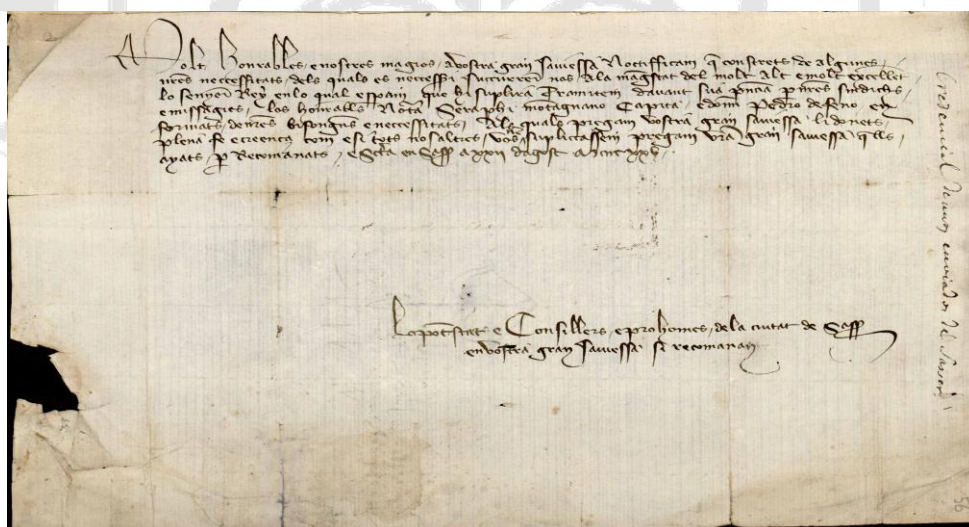 Molt honrables, e nostres maiors, a vostra gran saviessa Notifficam q constrets de algunes
nres necessitats, dels quals es necessari sucurrerem nos ala magestat del molt Alt e molt excellet
lo senneor Rey enlo qual speram que hi suplira Trametem davant sua pncia p nres sindichs
e missatges, los honrables Nota Seraphi motagnano Capita, e donn Pedro de feno en
formats de nres bisongns e necessitats, Als quals pregam vostra gran saviessa li donets
plena fe e creenca com si tots nosaltres, vos suplicassem pregam vra gran saviessa q lls
ayats p Recomanats, Scta en Sass a xxii dagost
Lo potestat e Consillers, e prohomens, dela ciutat de Sass
en vostra gran saviessa se recomanan
Credencial de uns enviados de Sasser
56